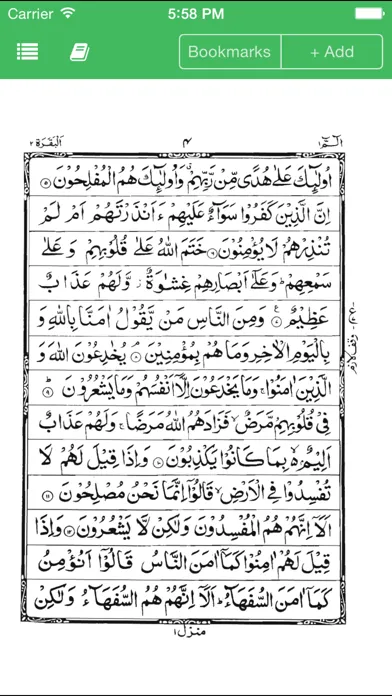 Carrier 5:58 PM
Bookmarks + Add
الٓمّٓ ١ ۴ اَلْبَقَرَة ٢
اُولٰٓئِكَ عَلٰى هُدًى مِّنْ رَّبِّهِمْ ۗ وَاُولٰٓئِكَ هُمُ الْمُفْلِحُوْنَ ۝۵
اِنَّ الَّذِيْنَ كَفَرُوْا سَوَآءٌ عَلَيْهِمْ ءَاَنْذَرْتَهُمْ اَمْ لَمْ
تُنْذِرْهُمْ لَا يُؤْمِنُوْنَ ۝۶ خَتَمَ اللّٰهُ عَلٰى قُلُوْبِهِمْ وَعَلٰى
سَمْعِهِمْ ؕ وَعَلٰٓى اَبْصَارِهِمْ غِشَاوَةٌ ؗ وَّلَهُمْ عَذَابٌ
عَظِيْمٌ ۝۷ وَمِنَ النَّاسِ مَنْ يَّقُوْلُ اٰمَنَّا بِاللّٰهِ وَ
بِالْيَوْمِ الْاٰخِرِ وَمَا هُمْ بِمُؤْمِنِيْنَ ۝۸ يُخٰدِعُوْنَ اللّٰهَ وَ
الَّذِيْنَ اٰمَنُوْا ۚ وَمَا يَخْدَعُوْنَ اِلَّاۤ اَنْفُسَهُمْ وَمَا يَشْعُرُوْنَ ۝۹
فِيْ قُلُوْبِهِمْ مَّرَضٌ ۙ فَزَادَهُمُ اللّٰهُ مَرَضًا ۚ وَلَهُمْ عَذَابٌ
اَلِيْمٌ ۢ ۙ بِمَا كَانُوْا يَكْذِبُوْنَ ۝۱۰ وَاِذَا قِيْلَ لَهُمْ لَا
تُفْسِدُوْا فِي الْاَرْضِ ۙ قَالُوْٓا اِنَّمَا نَحْنُ مُصْلِحُوْنَ ۝۱۱
اَلَاۤ اِنَّهُمْ هُمُ الْمُفْسِدُوْنَ وَلٰكِنْ لَّا يَشْعُرُوْنَ ۝۱۲ وَاِذَا
قِيْلَ لَهُمْ اٰمِنُوْا كَمَاۤ اٰمَنَ النَّاسُ قَالُوْٓا اَنُؤْمِنُ
كَمَاۤ اٰمَنَ السُّفَهَآءُ ؕ اَلَاۤ اِنَّهُمْ هُمُ السُّفَهَآءُ وَلٰكِنْ
منزل ١